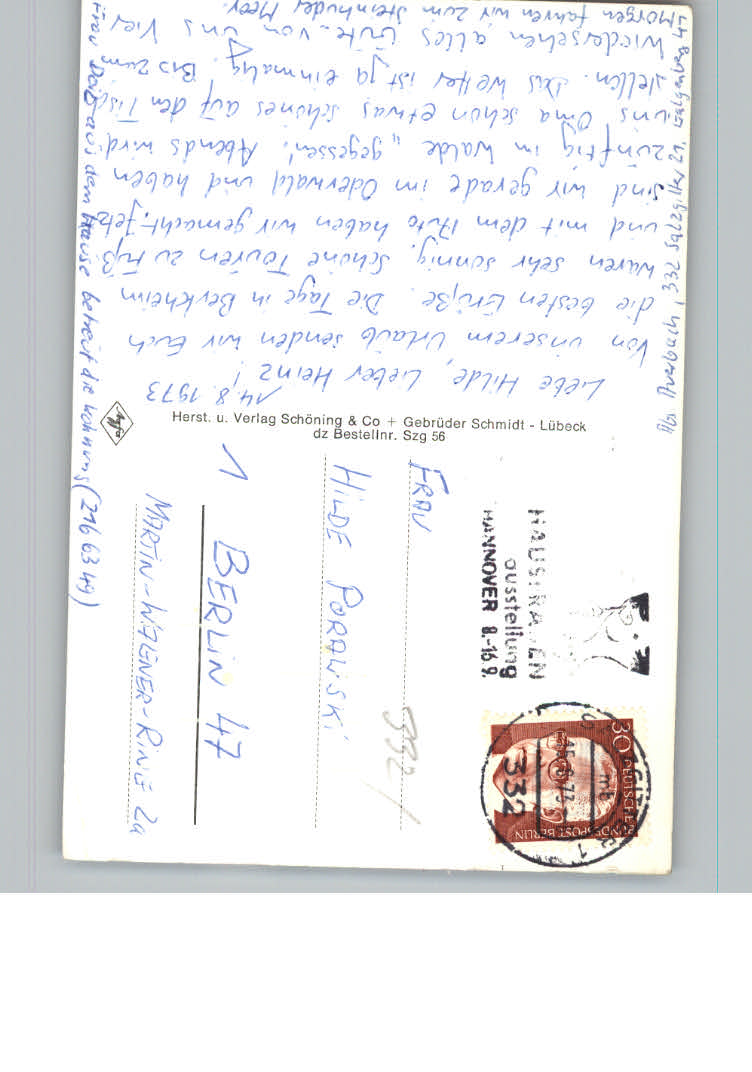 14.8.1973
Liebe Hilde, lieber Heinz!
Von unserem Urlaub senden wir Euch
die besten Grüße. Die Tage in Berkheim
waren sehr sonnig. Schöne Touren zu Fuß
und mit dem Auto haben wir gemacht. Jetzt
sind wir gerade im Oderwald und haben
zünftig im Walde „gegessen". Abends wird
uns Oma schon etwas schönes auf den Tisch
stellen. Das Wetter ist ja einmalig. Bis zum
Wiedersehen alles Gute von uns Vier
Morgen fahren wir zum Steinhuder Meer.
Frau aus dem Hause betreut die Wohnung (216 63 49)
332 Salzgitter
Herst. u. Verlag Schöning & Co + Gebrüder Schmidt - Lübeck
dz Bestellnr. Szg 56
Agfa
FRAU
HILDE PORAWSKI
1 BERLIN 47
MARTIN-WAGNER-RING 2a
332
HAUSFRAUEN
ausstellung
HANNOVER 8.-16.9.
332
mb
30
DEUTSCHE
BUNDESPOST BERLIN